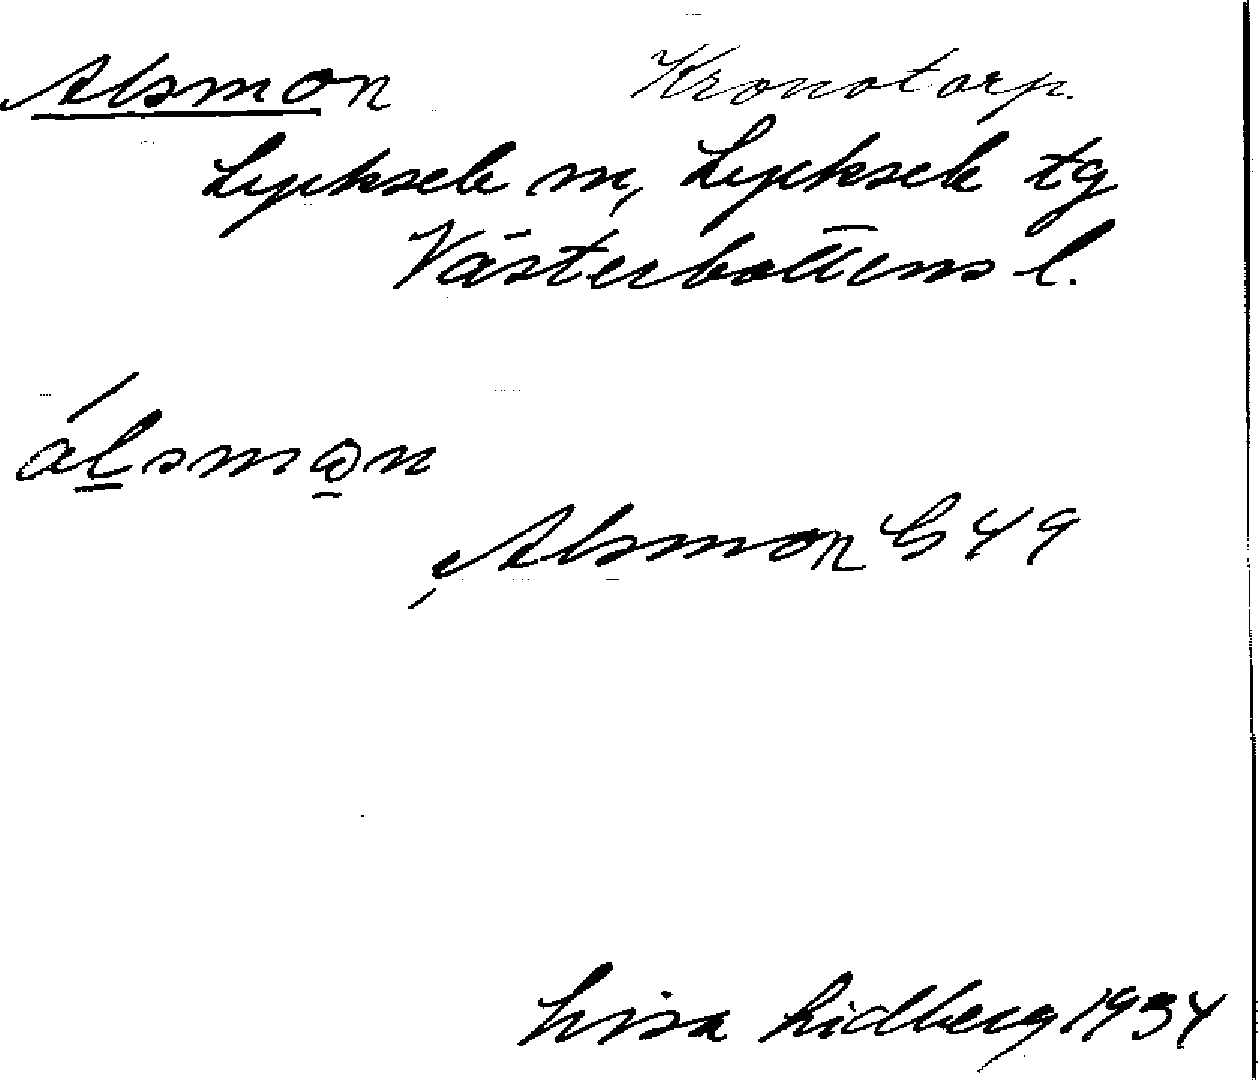 Alsmon Kronotorp.
Lycksele sn, Lycksele tg
Västerbottens l.
álsmon
Alsmon G 49
Lisa Lidberg 1934